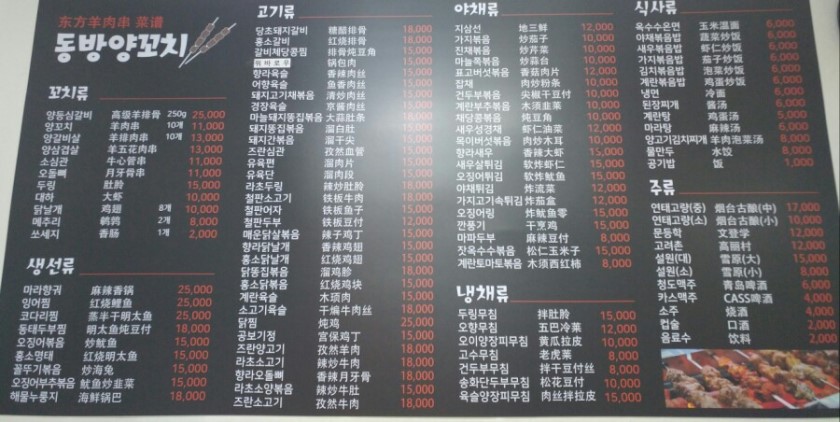 东方羊肉串 菜谱
동방양꼬치
꼬치류
양등심갈비 高级羊排骨 250g 25,000
양꼬치 羊肉串 10개 11,000
양갈비살 羊排肉串 10개 13,000
양삼겹살 羊五花肉串 13,000
소심관 牛心管串 11,000
오돌뼈 月牙骨串 11,000
두링 肚脸 15,000
대하 大虾 10,000
닭날개 鸡翅 8개 10,000
메추리 鹌鹑 2개 8,000
쏘세지 香肠 1개 2,000
생선류
마라향궈 麻辣香锅 25,000
잉어찜 红烧鲤鱼 25,000
코다리찜 蒸半干明太鱼 25,000
동태두부찜 明太鱼炖豆付 18,000
오징어볶음 炒鱿鱼 15,000
홍소명태 红烧明太鱼 15,000
꼴뚜기볶음 炒海兔 15,000
오징어부추볶음 鱿鱼炒韭菜 15,000
해물누룽지 海鲜锅巴 18,000
고기류
당초돼지갈비 糖醋排骨 18,000
홍소갈비 红烧排骨 18,000
갈비체당콩찜 排骨炖豆角 18,000
꿔바로우 锅包肉 15,000
향라육슬 香辣肉丝 15,000
어향육슬 鱼香肉丝 15,000
돼지고기채볶음 清炒肉丝 15,000
경장육슬 京酱肉丝 15,000
마늘돼지똥집볶음 大蒜肚条 18,000
돼지똥집볶음 溜白肚 15,000
돼지간볶음 溜干尖 15,000
즈란심관 孜然血管 15,000
유육편 溜肉片 15,000
유육단 溜肉段 15,000
라초두링 辣炒肚脸 18,000
철판소고기 铁板牛肉 18,000
철판어자 铁板鱼子 15,000
철판두부 铁板豆付 12,000
매운닭살볶음 辣子鸡丁 15,000
향라닭날개 香辣鸡翅 15,000
홍소닭날개 红烧鸡翅 15,000
닭똥집볶음 溜鸡胗 18,000
홍소닭볶음 红烧鸡块 15,000
계란육슬 木须肉 15,000
소고기육슬 干煸牛肉丝 18,000
닭찜 炖鸡 25,000
공보기정 宫保鸡丁 15,000
즈란양고기 孜然羊肉 18,000
라초소고기 辣炒牛肉 18,000
향라오돌뼈 香辣月牙骨 18,000
라초소양볶음 辣炒牛肚 15,000
즈란소고기 孜然牛肉 18,000
야채류
지삼선 地三鲜 12,000
가지볶음 炒茄子 10,000
진채볶음 炒芹菜 10,000
마늘쫑볶음 炒蒜台 10,000
표고버섯볶음 香菇肉片 12,000
잡채 肉炒粉条 10,000
건두부볶음 尖椒干豆付 10,000
계란부추볶음 木须韭菜 10,000
채당콩볶음 炖豆角 10,000
새우성경채 虾仁油菜 12,000
목이버섯볶음 肉炒木耳 10,000
향라새우 香辣大虾 15,000
새우살튀김 软炸虾仁 15,000
오징어튀김 软炸鱿鱼 15,000
야채튀김 炸流菜 12,000
가지고기속튀김 炸茄盒 12,000
오징어링 炸鱿鱼零 15,000
깐풍기 干烹鸡 15,000
마파두부 麻辣豆付 8,000
잣옥수수볶음 松仁玉米子 15,000
계란토마토볶음 木须西红柿 8,000
냉채류
두링무침 拌肚脸 15,000
오향무침 五巴冷莱 12,000
오이양장피무침 黄瓜拉皮 10,000
고수무침 老虎菜 8,000
건두부무침 拌干豆付丝 8,000
송화단두부무침 松花豆付 10,000
육슬양장피무침 肉丝拌拉皮 15,000
식사류
옥수수온면 玉米温面 6,000
야채볶음밥 蔬菜炒饭 6,000
새우볶음밥 虾仁炒饭 6,000
가지볶음밥 茄子炒饭 6,000
김치볶음밥 泡菜炒饭 6,000
계란볶음밥 鸡蛋炒饭 6,000
냉면 冷面 6,000
된장찌개 酱汤 6,000
계란탕 鸡蛋汤 5,000
마라탕 麻辣汤 6,000
양고기김치찌개 羊肉泡菜汤 8,000
물만두 水饺 8,000
공기밥 饭 1,000
주류
연태고량(중) 烟台古酿(中) 17,000
연태고량(소) 烟台古酿(小) 10,000
문등학 文登学 12,000
고려촌 高丽村 12,000
설원(대) 雪原(大) 15,000
설원(소) 雪原(小) 8,000
청도맥주 青岛啤酒 6,000
카스맥주 CASS啤酒 4,000
소주 烧酒 4,000
컵술 口酒 2,000
음료수 饮料 2,000